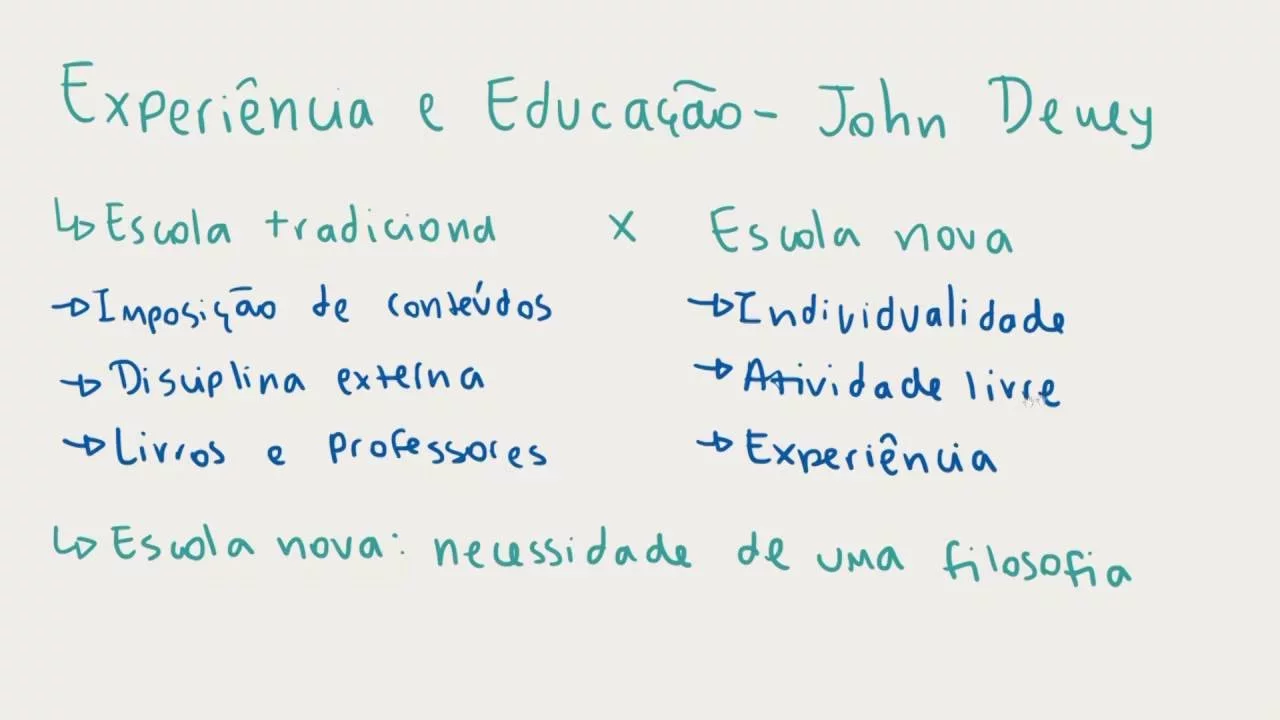 Experiência e Educação - John Dewey
↳ Escola tradicional x Escola nova
→ Imposição de conteúdos → Individualidade
→ Disciplina externa → Atividade livre
→ Livros e professores → Experiência
↳ Escola nova: necessidade de uma filosofia